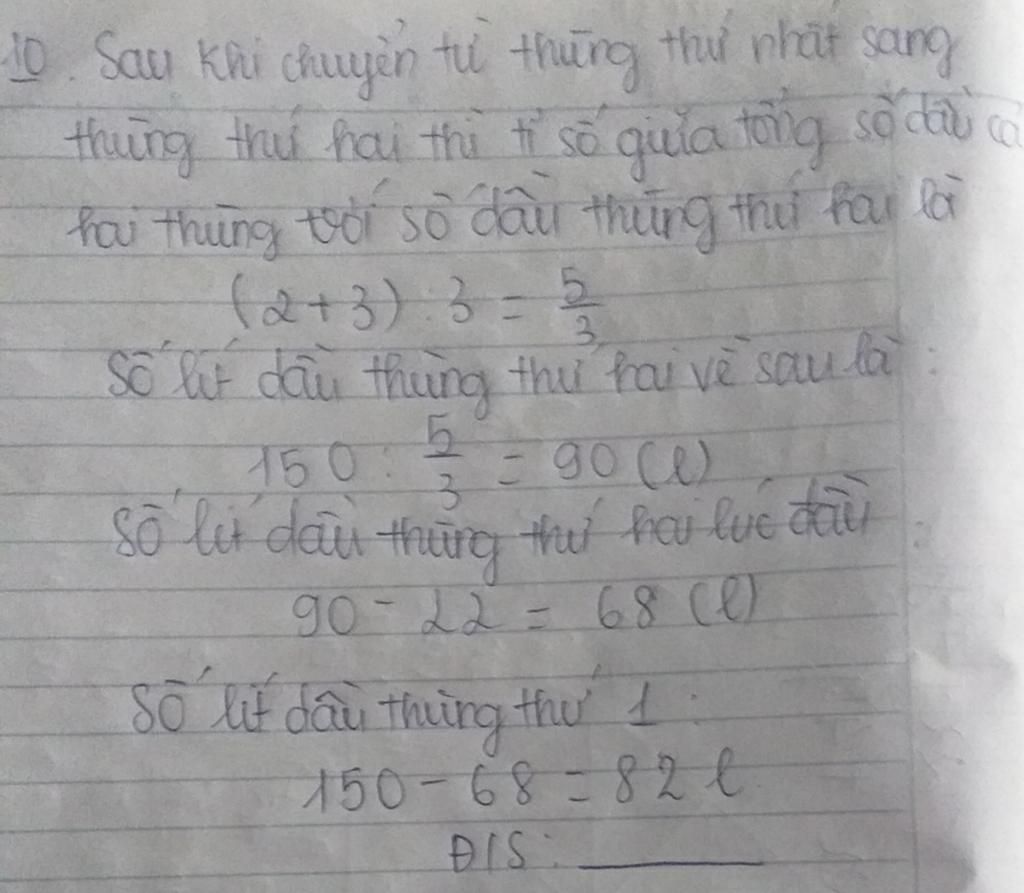 10. Sau khi chuyển từ thùng thứ nhất sang
thùng thứ hai thì tỉ số giữa tổng số dầu cả
hai thùng với số dầu thùng thứ hai là
(2+3) : 3 = 5/3
Số lít dầu thùng thứ hai về sau là :
150 : 5/3 = 90 (l)
Số lít dầu thùng thứ hai lúc đầu :
90 - 22 = 68 (l)
Số lít dầu thùng thứ 1 :
150 - 68 = 82 l
Đ/S : ______